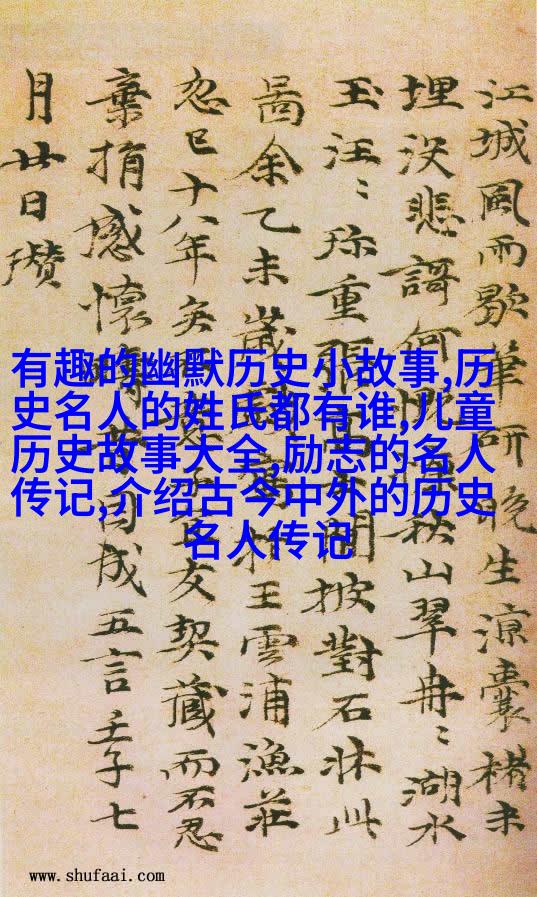 江城風雨歇筆研晚生涼囊楮未
埋没悲謌何秋山翠冉〻湖水
玉汪〻珎重張閒披對石牀此
啚余乙未歲寫於王雲浦漁莊
忽已十八年矣不友契藏而不忍
棄捐感懷因成五言壬子七
月廿日瓚
有趣的幽默历史小故事,历
史名人的姓氏都有谁,儿童
历史故事大全,励志的名人
传记,介绍古今中外的历史
名人传记
www.shufaai.com